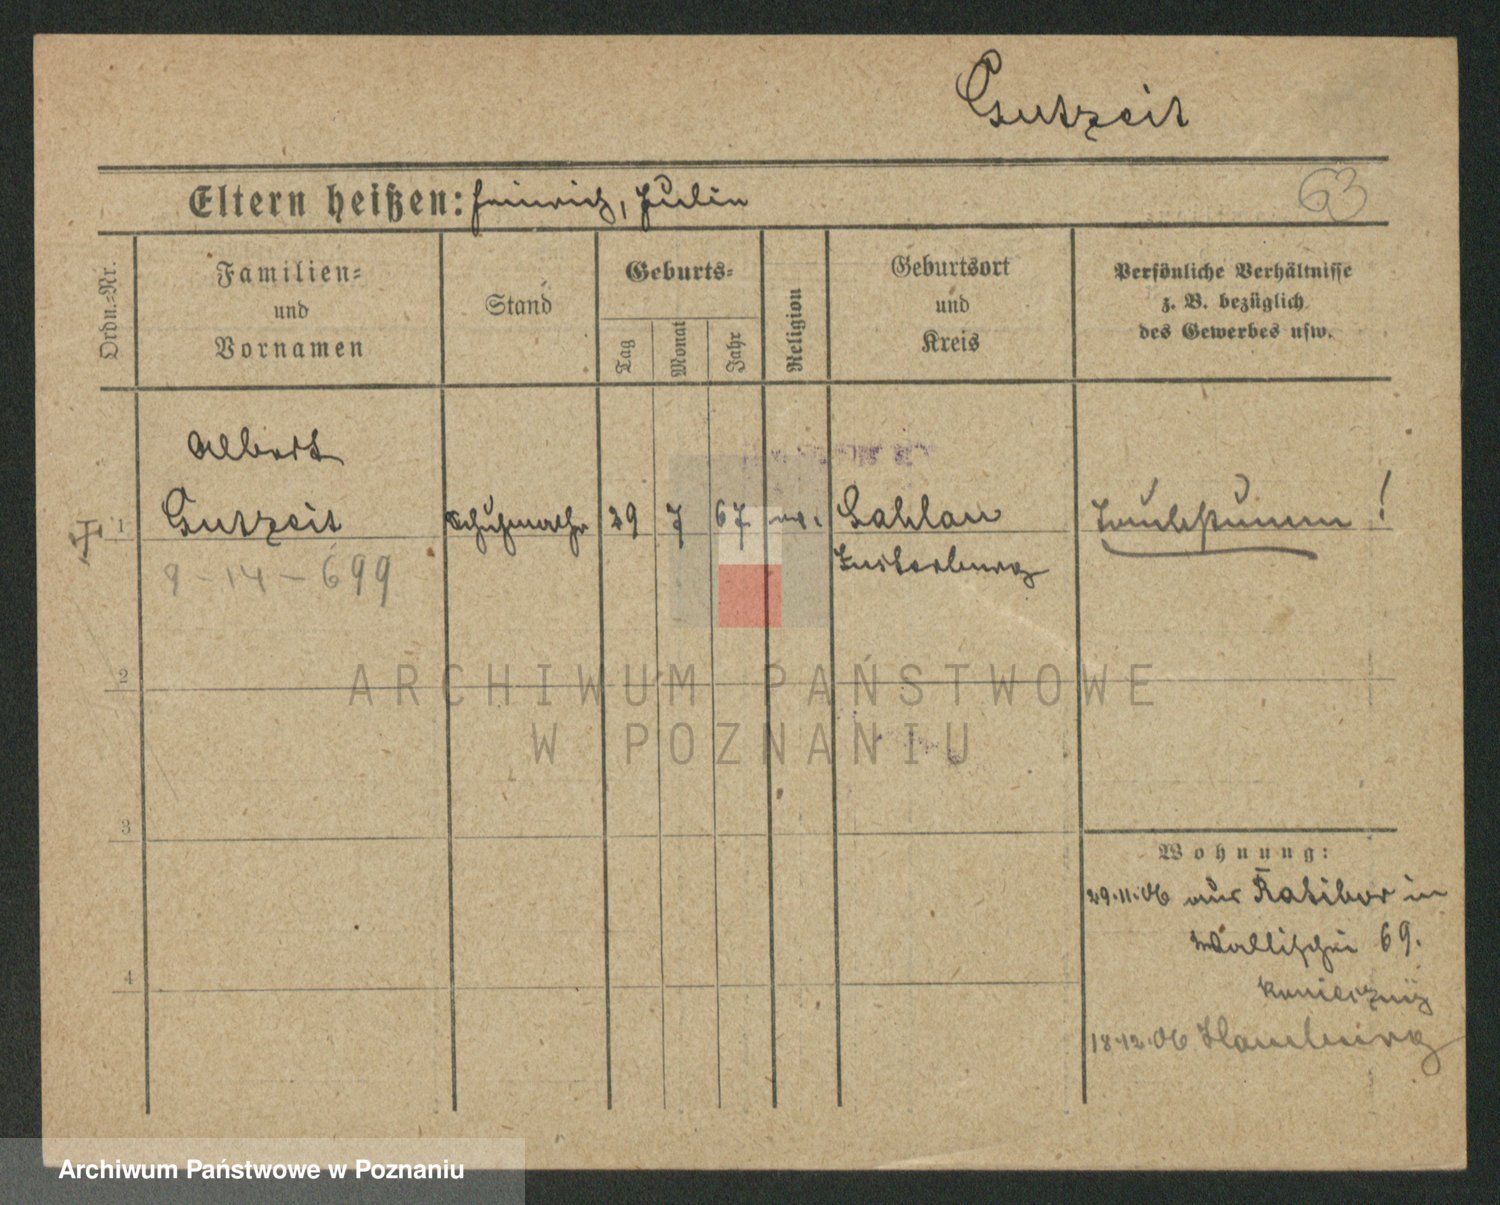 Gutzeit
Eltern heißen: Heinrich, Julie
63
Ordn.=Nr.
Familien=
und
Vornamen
Stand
Geburts=
Tag
Monat
Jahr
Religion
Geburtsort
und
Kreis
Persönliche Verhältnisse
z. B. bezüglich
des Gewerbes usw.
Albert
1 Gutzeit
29 7 67 ev.
Taubstumm!
Insterburg
9-14-699
2
ARCHIWUM PAŃSTWOWE
W POZNANIU
3
Wohnung:
29.11.06 aus Ratibor in
Wallischei 69.
4
18.12.06 Hamburg
Archiwum Państwowe w Poznaniu